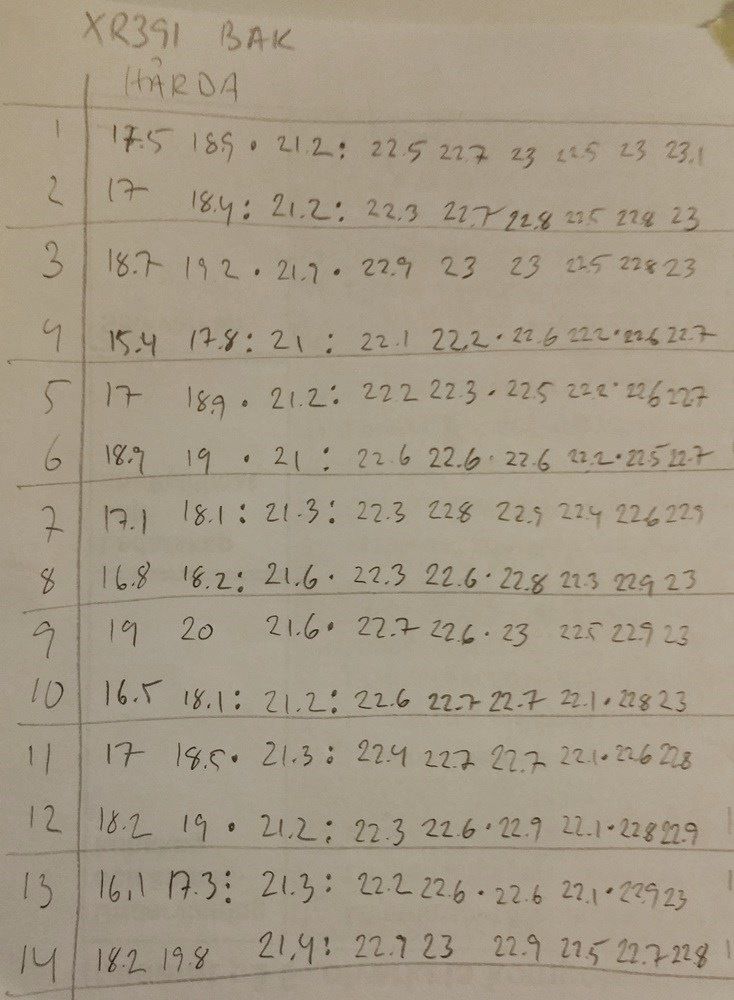 XR391 BAK
HÅRDA
1 17.5 18.9 • 21.2: 22.5 22.7 23 22.5 23 23.1
2 17 18.4: 21.2: 22.3 22.7 22.8 22.5 22.8 23
3 18.7 19 2 • 21.9 • 22.9 23 23 22.5 22.8 23
4 15.4 17.8: 21 : 22.1 22.2 • 22.6 22.2 • 22.6 22.7
5 17 18.9 • 21.2: 22.2 22.3 • 22.5 22.2 • 22.6 22.7
6 18.9 19 • 21 : 22.6 22.6 • 22.6 22.2 • 22.5 22.7
7 17.1 18.1: 21.3: 22.3 22.8 22.9 22.4 22.6 22.9
8 16.8 18.2: 21.6 • 22.3 22.6 • 22.8 22.3 22.9 23
9 19 20 21.6 • 22.7 22.6 • 23 22.5 22.9 23
10 16.5 18.1: 21.2: 22.6 22.7 22.7 22.1 • 22.8 23
11 17 18.5 • 21.3: 22.4 22.7 22.7 22.1 • 22.6 22.8
12 18.2 19 • 21.2: 22.3 22.6 • 22.9 22.1 • 22.8 22.9
13 16.1 17.3: 21.3: 22.2 22.6 • 22.6 22.1 • 22.9 23
14 18.2 19.8 21.4: 22.9 23 22.9 22.5 22.7 22.8